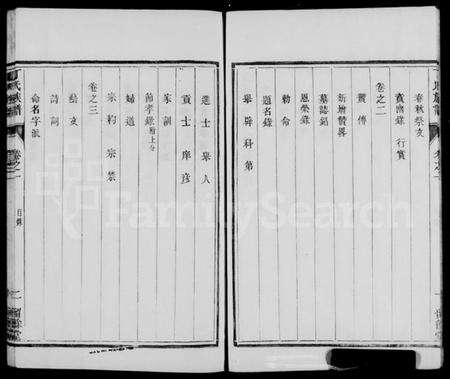 春秋祭文
實行
卷之二
賢傳
新增贊畧
墓誌銘
恩榮錄
勅命
題名錄
舉辟科第
進士 舉人
貢士 庠彥
家訓
節孝錄 附上合
婦道
宗約 宗禁
卷之三
詩詞
命名字派
氏族譜
卷之一
目錄
二
FamilySearch